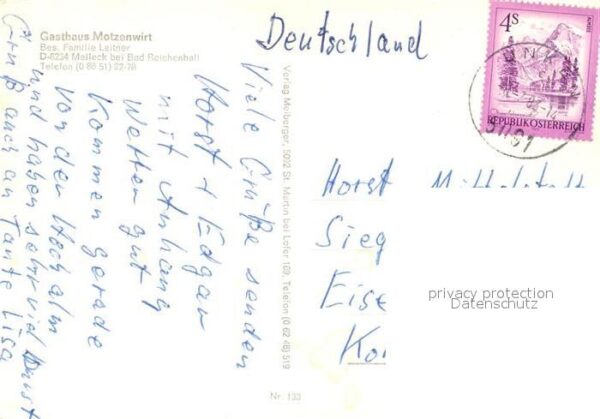 Gasthaus Motzenwirt
Bes. Familie Leitner
D-8234 Melleck bei Bad Reichenhall
Telefon (0 86 51)
Deutschland
4S
REPUBLIK ÖSTERREICH
Viele Grüße senden
Horst + Edgar
mit Anhang
Wetter gut
Kommen gerade
von der Hochalm
und haben sehr viel Durst
Gruß auch an Tante Lisa
Verlag Meiberger, 5092 St. Martin bei Lofer 109, Telefon (0 62 48) 519
Horst
Sieg
Eise
Ko
privacy protection
Datenschutz
Nr. 133